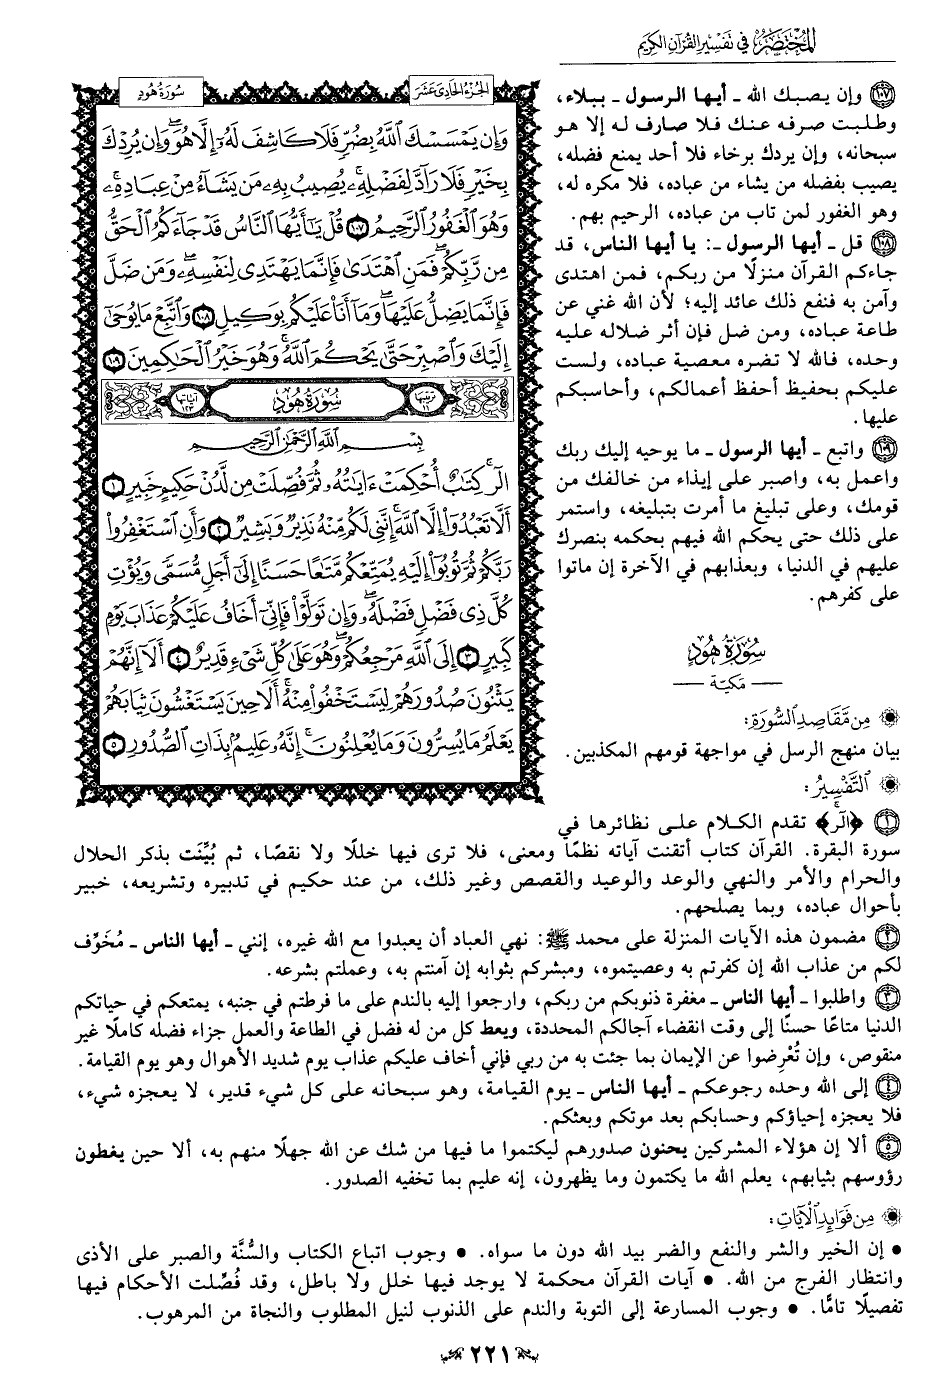 المختصر في تفسير القرآن الكريم
الجزء الحادي عشر
سورة هود
وَإِن يَمْسَسْكَ ٱللَّهُ بِضُرٍّ فَلَا كَاشِفَ لَهُۥٓ إِلَّا هُوَۖ وَإِن يُرِدْكَ
بِخَيْرٍ فَلَا رَآدَّ لِفَضْلِهِۦۚ يُصِيبُ بِهِۦ مَن يَشَآءُ مِنْ عِبَادِهِۦۚ
وَهُوَ ٱلْغَفُورُ ٱلرَّحِيمُ ١٠٧ قُلْ يَٰٓأَيُّهَا ٱلنَّاسُ قَدْ جَآءَكُمُ ٱلْحَقُّ
مِن رَّبِّكُمْۖ فَمَنِ ٱهْتَدَىٰ فَإِنَّمَا يَهْتَدِى لِنَفْسِهِۦۖ وَمَن ضَلَّ
فَإِنَّمَا يَضِلُّ عَلَيْهَاۖ وَمَآ أَنَا۠ عَلَيْكُم بِوَكِيلٍ ١٠٨ وَٱتَّبِعْ مَا يُوحَىٰٓ
إِلَيْكَ وَٱصْبِرْ حَتَّىٰ يَحْكُمَ ٱللَّهُۚ وَهُوَ خَيْرُ ٱلْحَٰكِمِينَ ١٠٩
ترتيبها ١١ سُورَةُ هُودٍ آياتها ١٢٣
بِسْمِ ٱللَّهِ ٱلرَّحْمَٰنِ ٱلرَّحِيمِ
الٓرۚ كِتَٰبٌ أُحْكِمَتْ ءَايَٰتُهُۥ ثُمَّ فُصِّلَتْ مِن لَّدُنْ حَكِيمٍ خَبِيرٍ ١
أَلَّا تَعْبُدُوٓا۟ إِلَّا ٱللَّهَۚ إِنَّنِى لَكُم مِّنْهُ نَذِيرٌ وَبَشِيرٌ ٢ وَأَنِ ٱسْتَغْفِرُوا۟
رَبَّكُمْ ثُمَّ تُوبُوٓا۟ إِلَيْهِ يُمَتِّعْكُم مَّتَٰعًا حَسَنًا إِلَىٰٓ أَجَلٍ مُّسَمًّى وَيُؤْتِ
كُلَّ ذِى فَضْلٍ فَضْلَهُۥۖ وَإِن تَوَلَّوْا۟ فَإِنِّىٓ أَخَافُ عَلَيْكُمْ عَذَابَ يَوْمٍ
كَبِيرٍ ٣ إِلَى ٱللَّهِ مَرْجِعُكُمْۖ وَهُوَ عَلَىٰ كُلِّ شَىْءٍ قَدِيرٌ ٤ أَلَآ إِنَّهُمْ
يَثْنُونَ صُدُورَهُمْ لِيَسْتَخْفُوا۟ مِنْهُۚ أَلَا حِينَ يَسْتَغْشُونَ ثِيَابَهُمْ
يَعْلَمُ مَا يُسِرُّونَ وَمَا يُعْلِنُونَۚ إِنَّهُۥ عَلِيمٌۢ بِذَاتِ ٱلصُّدُورِ ٥
١٠٧ وإن يصبك الله ـ أيها الرسول ـ ببلاء،
وطلبت صرفه عنك فلا صارف له إلا هو
سبحانه، وإن يردك برخاء فلا أحد يمنع فضله،
يصيب بفضله من يشاء من عباده، فلا مكره له،
وهو الغفور لمن تاب من عباده، الرحيم بهم.
١٠٨ قل ـ أيها الرسول ـ: يا أيها الناس، قد
جاءكم القرآن منزلًا من ربكم، فمن اهتدى
وآمن به فنفع ذلك عائد إليه؛ لأن الله غني عن
طاعة عباده، ومن ضل فإن أثر ضلاله عليه
وحده، فالله لا تضره معصية عباده، ولست
عليكم بحفيظ أحفظ أعمالكم، وأحاسبكم
عليها.
١٠٩ واتبع ـ أيها الرسول ـ ما يوحيه إليك ربك
واعمل به، واصبر على إيذاء من خالفك من
قومك، وعلى تبليغ ما أمرت بتبليغه، واستمر
على ذلك حتى يحكم الله فيهم بحكمه بنصرك
عليهم في الدنيا، وبعذابهم في الآخرة إن ماتوا
على كفرهم.
سُورَةُ هُودٍ
— مكيّة —
من مقاصد السورة:
بيان منهج الرسل في مواجهة قومهم المكذبين.
التفسير:
١ ﴿الٓرۚ﴾ تقدم الكلام على نظائرها في
سورة البقرة. القرآن كتاب أتقنت آياته نظمًا ومعنى، فلا ترى فيها خللًا ولا نقصًا، ثم بُيِّنَت بذكر الحلال
والحرام والأمر والنهي والوعد والوعيد والقصص وغير ذلك، من عند حكيم في تدبيره وتشريعه، خبير
بأحوال عباده، وبما يصلحهم.
٢ مضمون هذه الآيات المنزلة على محمد ﷺ: نهي العباد أن يعبدوا مع الله غيره، إنني ـ أيها الناس ـ مُخَوِّف
لكم من عذاب الله إن كفرتم به وعصيتموه، ومبشركم بثوابه إن آمنتم به، وعملتم بشرعه.
٣ واطلبوا ـ أيها الناس ـ مغفرة ذنوبكم من ربكم، وارجعوا إليه بالندم على ما فرطتم في جنبه، يمتعكم في حياتكم
الدنيا متاعًا حسنًا إلى وقت انقضاء آجالكم المحددة، ويعط كل من له فضل في الطاعة والعمل جزاء فضله كاملًا غير
منقوص، وإن تُعْرِضوا عن الإيمان بما جئت به من ربي فإني أخاف عليكم عذاب يوم شديد الأهوال وهو يوم القيامة.
٤ إلى الله وحده رجوعكم ـ أيها الناس ـ يوم القيامة، وهو سبحانه على كل شيء قدير، لا يعجزه شيء،
فلا يعجزه إحياؤكم وحسابكم بعد موتكم وبعثكم.
٥ ألا إن هؤلاء المشركين يحنون صدورهم ليكتموا ما فيها من شك عن الله جهلًا منهم به، ألا حين يغطون
رؤوسهم بثيابهم، يعلم الله ما يكتمون وما يظهرون، إنه عليم بما تخفيه الصدور.
من فوائد الآيات:
• إن الخير والشر والنفع والضر بيد الله دون ما سواه. • وجوب اتباع الكتاب والسُّنَّة والصبر على الأذى
وانتظار الفرج من الله. • آيات القرآن محكمة لا يوجد فيها خلل ولا باطل، وقد فُصِّلت الأحكام فيها
تفصيلًا تامًّا. • وجوب المسارعة إلى التوبة والندم على الذنوب لنيل المطلوب والنجاة من المرهوب.
٢٢١